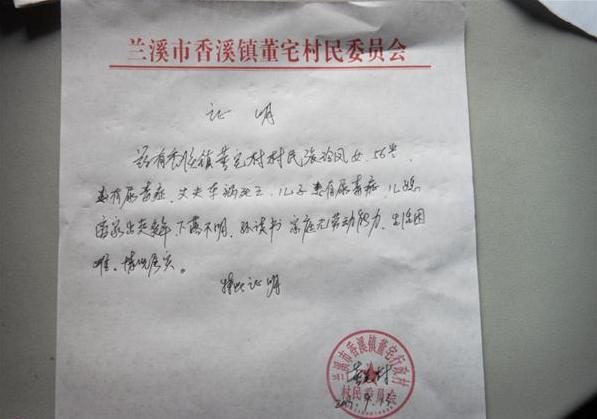 兰溪市香溪镇董宅村民委员会
证明
兹有香溪镇董宅村村民张冷凤女、56岁、
患有尿毒症、丈夫车祸死亡、儿子患有尿毒症、儿媳
离家出走多年下落不明、孙读书 家庭无劳动能力、生活困
难、情况属实。
特此证明
兰溪市香溪镇董宅行政村
村民委员会
董宅村